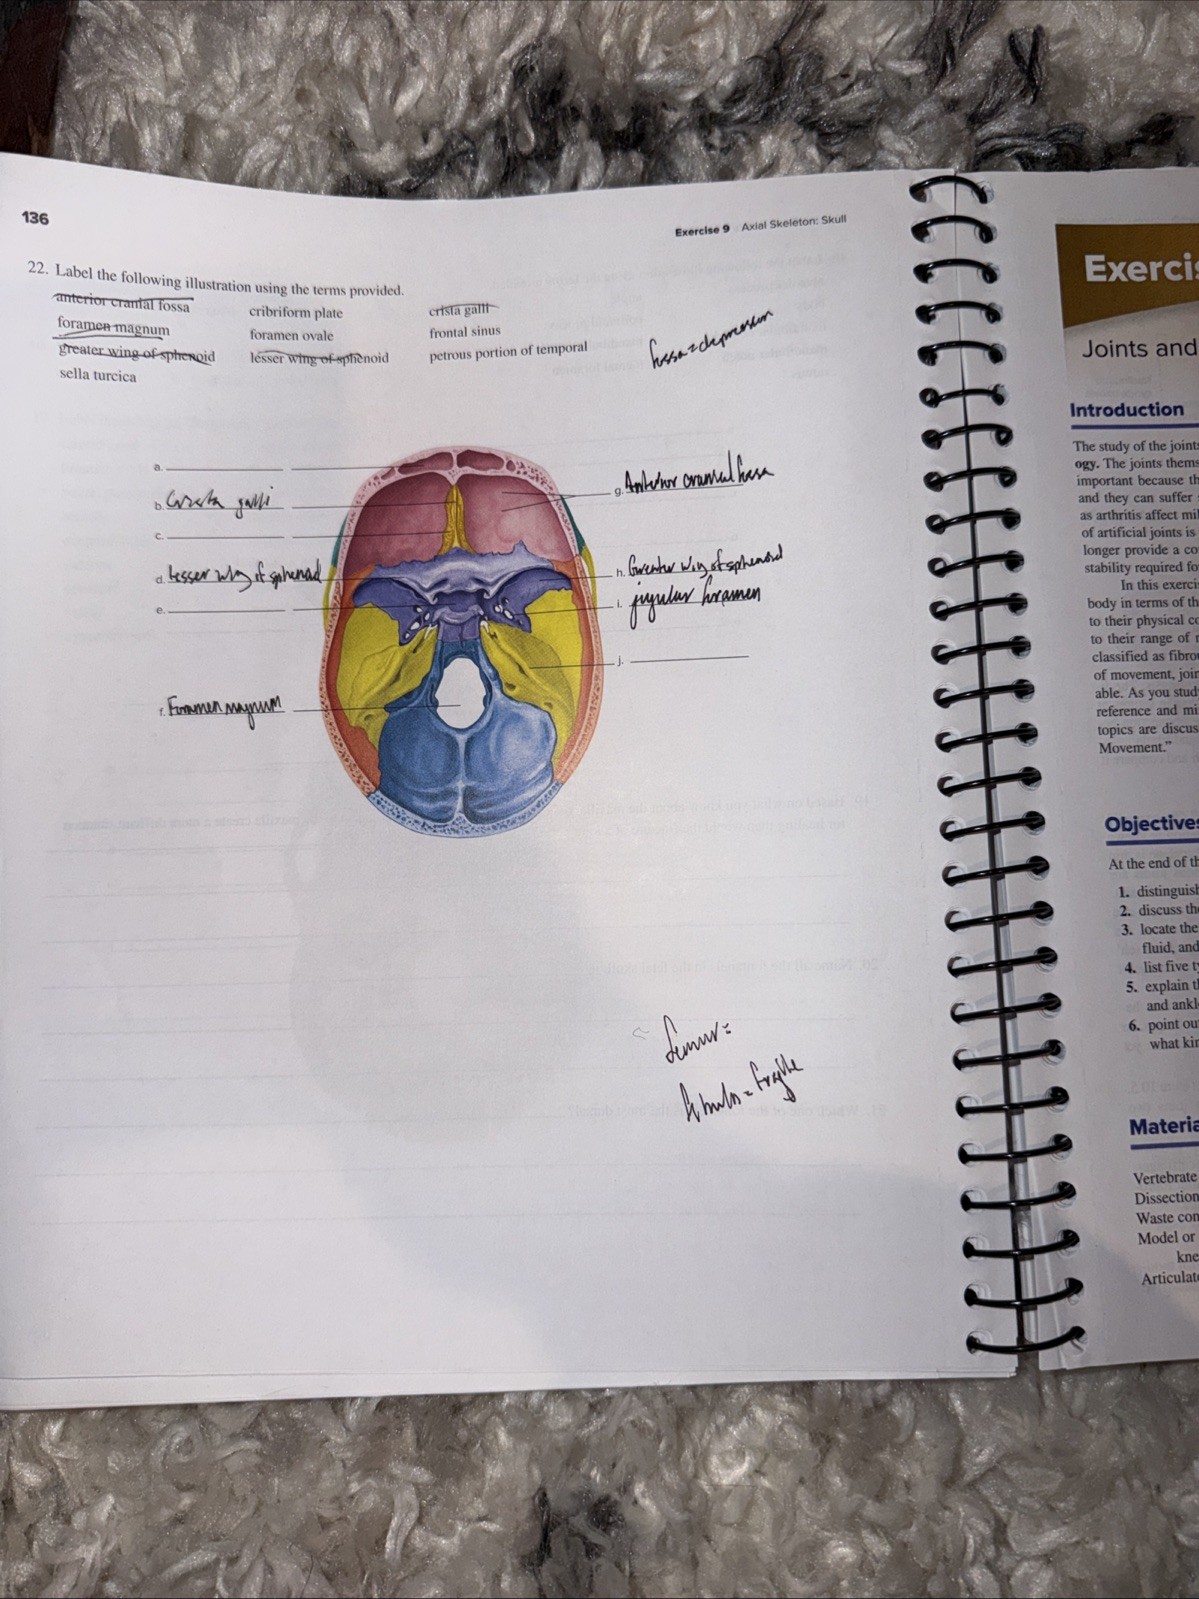 136
Exercise 9 Axial Skeleton: Skull
22. Label the following illustration using the terms provided.
anterior cranial fossa cribriform plate crista galli
foramen magnum foramen ovale frontal sinus
greater wing of sphenoid lesser wing of sphenoid petrous portion of temporal
sella turcica
fossa = depression
a.
b. Crista galli
c.
d. lesser wing of sphenoid
e.
f. Foramen magnum
g. Anterior cranial fossa
h. Greater wing of sphenoid
i. jugular foramen
j.
femur =
= fragile
Exercis
Joints and
Introduction
The study of the joints
ogy. The joints thems
important because th
and they can suffer
as arthritis affect mil
of artificial joints is
longer provide a co
stability required fo
In this exerci
body in terms of th
to their physical co
to their range of r
classified as fibro
of movement, join
able. As you stud
reference and mi
topics are discus
Movement.”
Objectives
At the end of th
1. distinguish
2. discuss the
3. locate the
fluid, and
4. list five ty
5. explain th
and ankl
6. point ou
what kin
Materia
Vertebrate
Dissection
Waste con
Model or
kne
Articulate